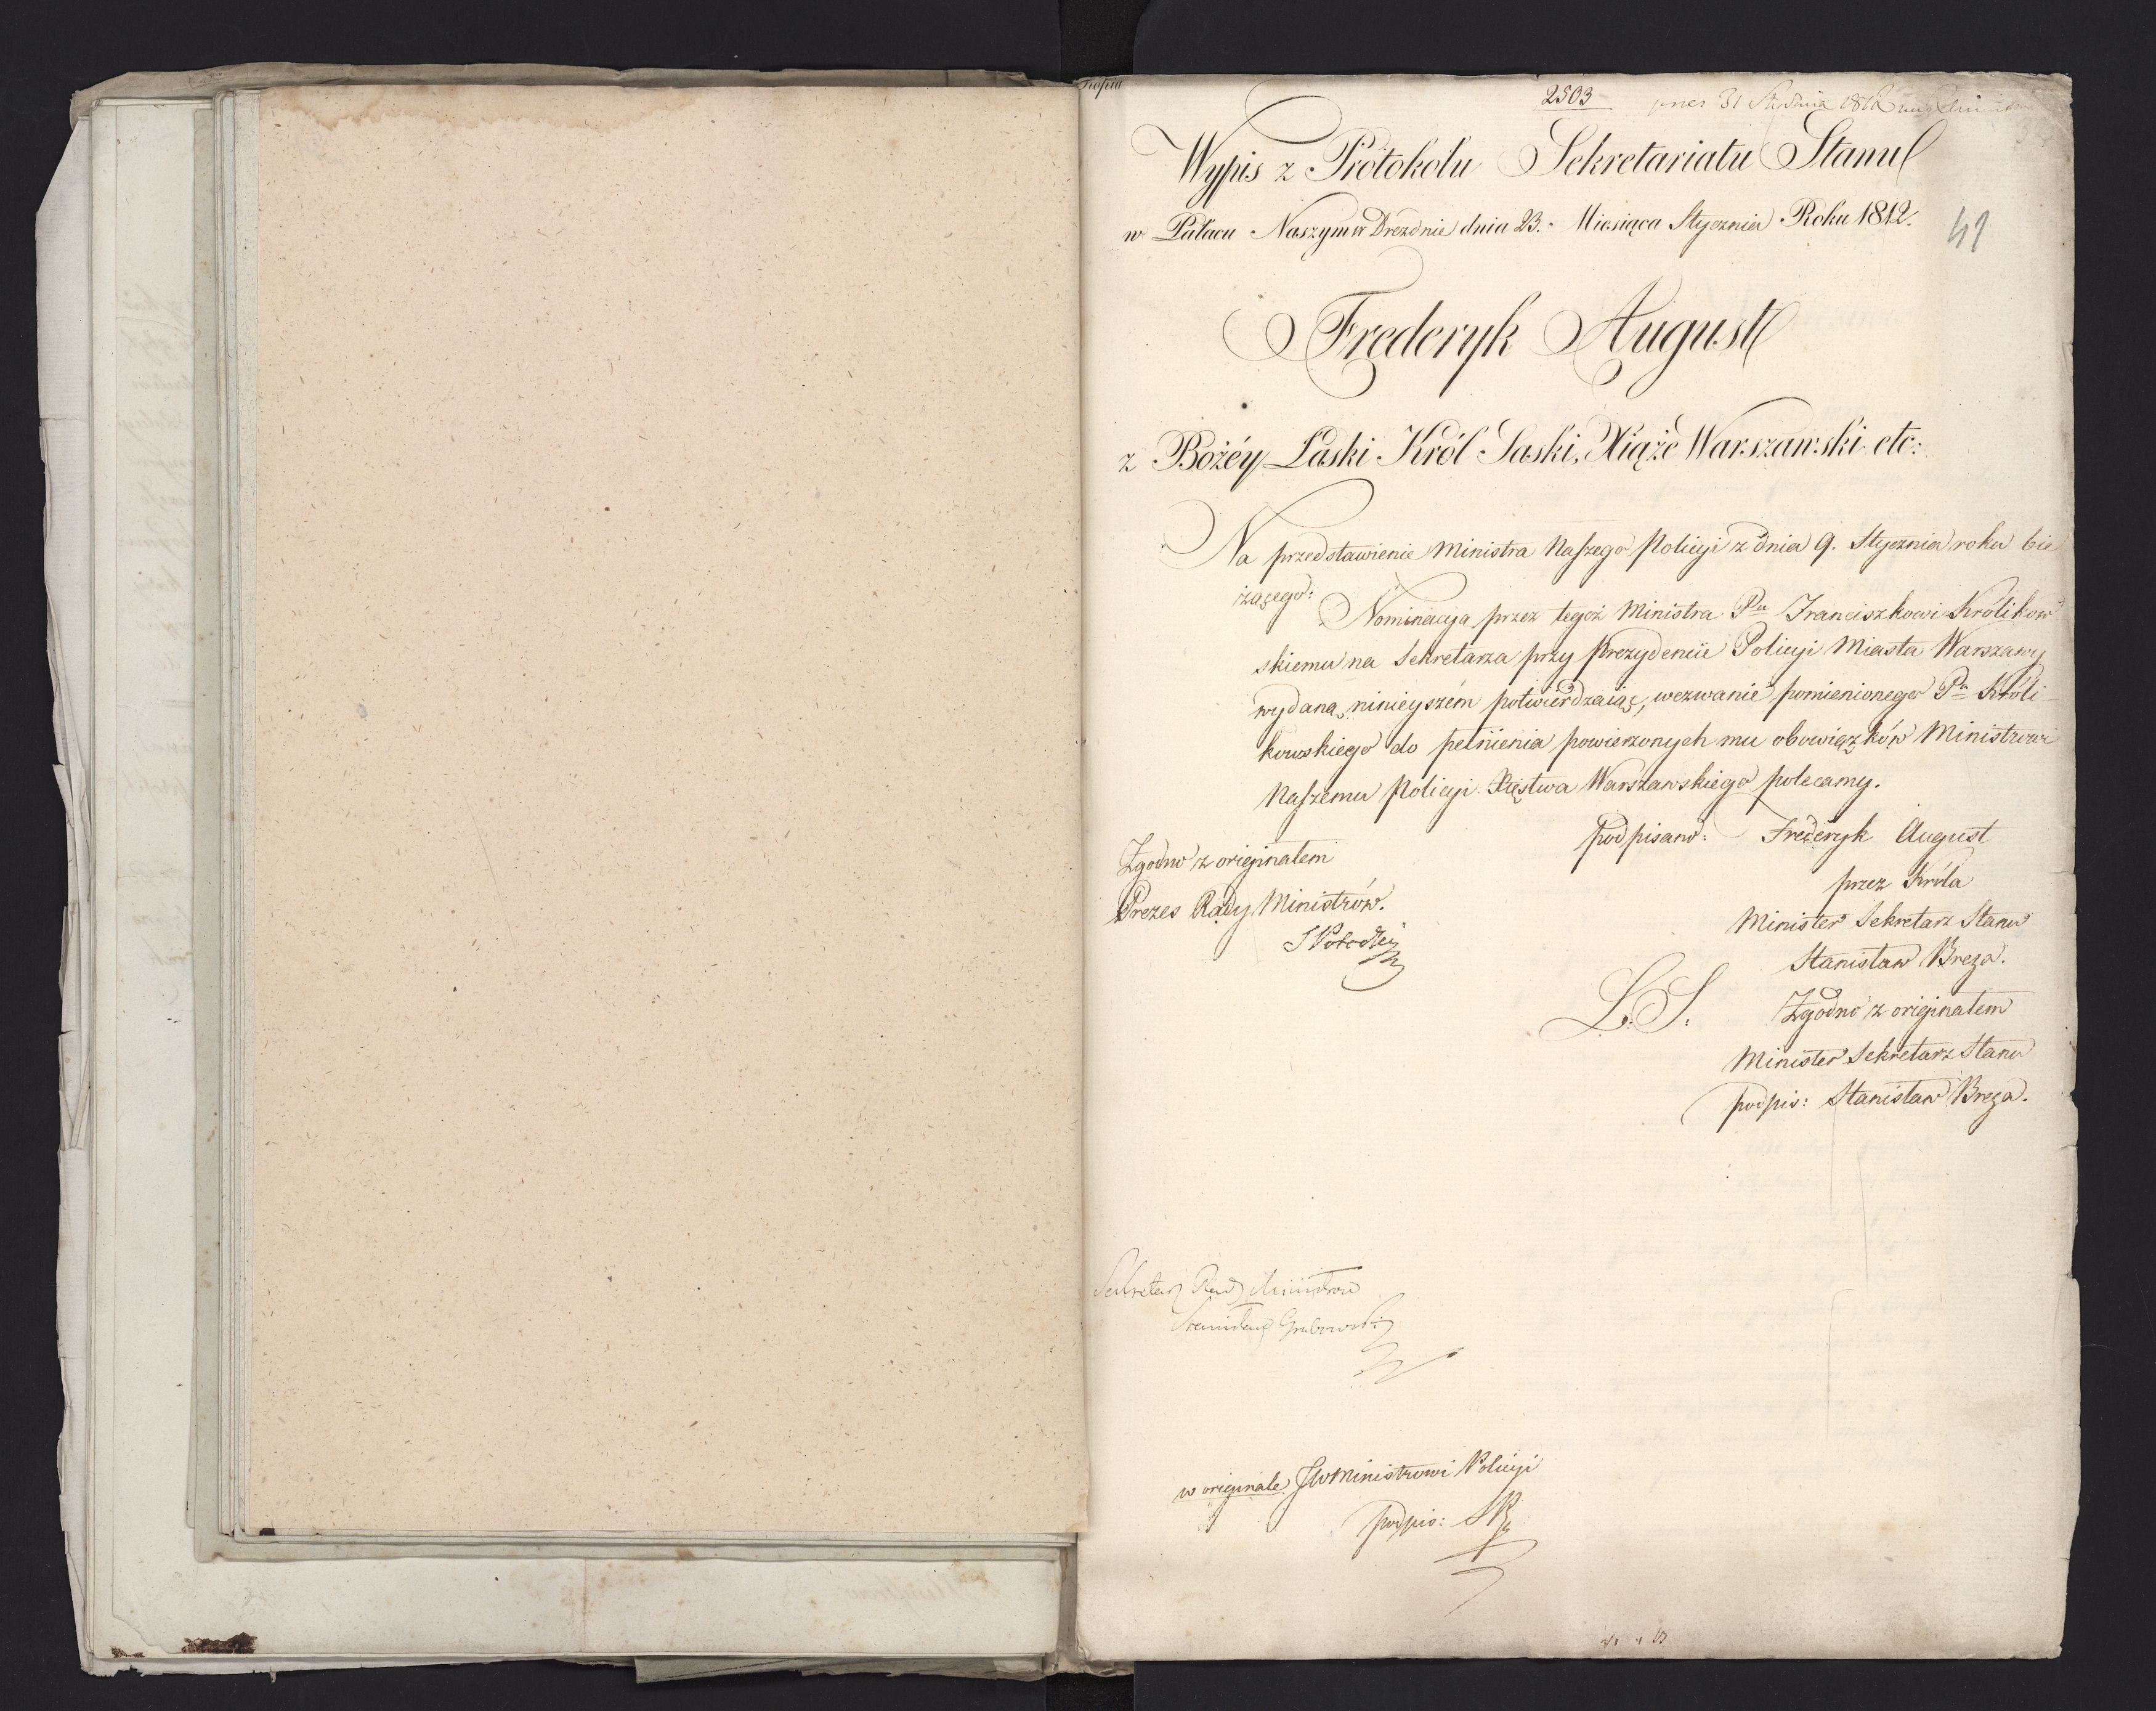 2503
31 Stycznia 1812
Wypis z Protokołu Sekretariatu Stanu
w Pałacu Naszym w Dreznie dnia 23. Miesiąca Stycznia Roku 1812.
41
Frederyk August
z Bożéy Łaski Król Saski, Xiąże Warszawski etc:
Na przedstawienie Ministra Naszego Policyi z dnia 9. Stycznia roku bie
żącego:
Nominacyą przez tegoż Ministra Pu Franciszkowi Królikow
skiemu na Sekretarza przy Prezydencie Policyi Miasta Warszawy
wydaną ninieyszém potwierdzaiąc, wezwanie pomienionego Pa Króli-
kowskiego do pełnienia powierzonych mu obowiązków Ministrowi
Naszemu Policyi Xięstwa Warszawskiego polecamy.
podpisano: Frederyk August
przez Króla
Minister Sekretarz Stanu
Stanisław Breza.
Zgodno z originałem
Prezes Rady Ministrów.
L. S.
Zgodno z originałem
Minister Sekretarz Stanu
podpis: Stanisław Breza.
Sekretarz Rady Ministrów
Stanisław Grabowski
w originale JW Ministrowi Policyi
podpis: